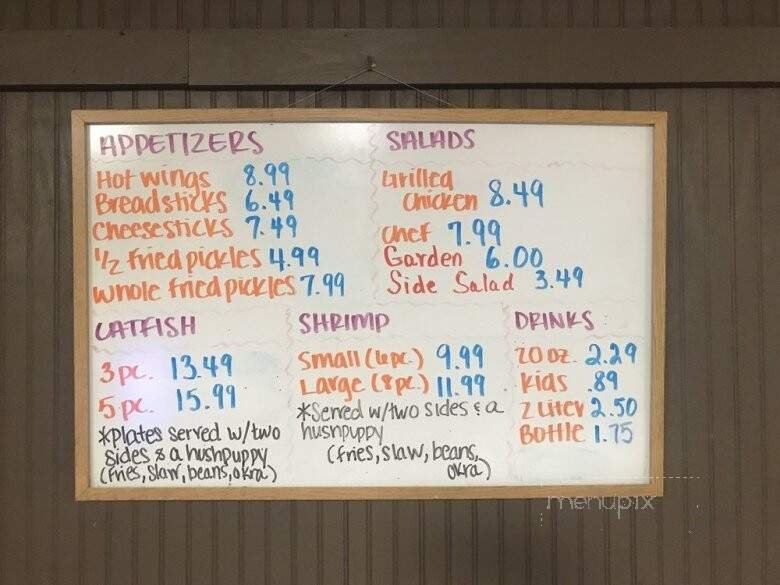 APPETIZERS
Hot wings 8.99
Breadsticks 6.49
Cheesesticks 7.49
1/2 fried pickles 4.99
whole fried pickles 7.99
SALADS
Grilled
Chicken 8.49
Chef 7.99
Garden 6.00
Side Salad 3.49
CATFISH
3 pc. 13.49
5 pc. 15.99
*Plates served w/two
sides & a hushpuppy
(fries, slaw, beans, okra)
SHRIMP
Small (6pc.) 9.99
Large (8pc.) 11.99
*Served w/two sides & a
hushpuppy
(fries, slaw, beans,
okra)
DRINKS
20 oz. 2.29
Kids .89
2 Liter 2.50
Bottle 1.75
menupix